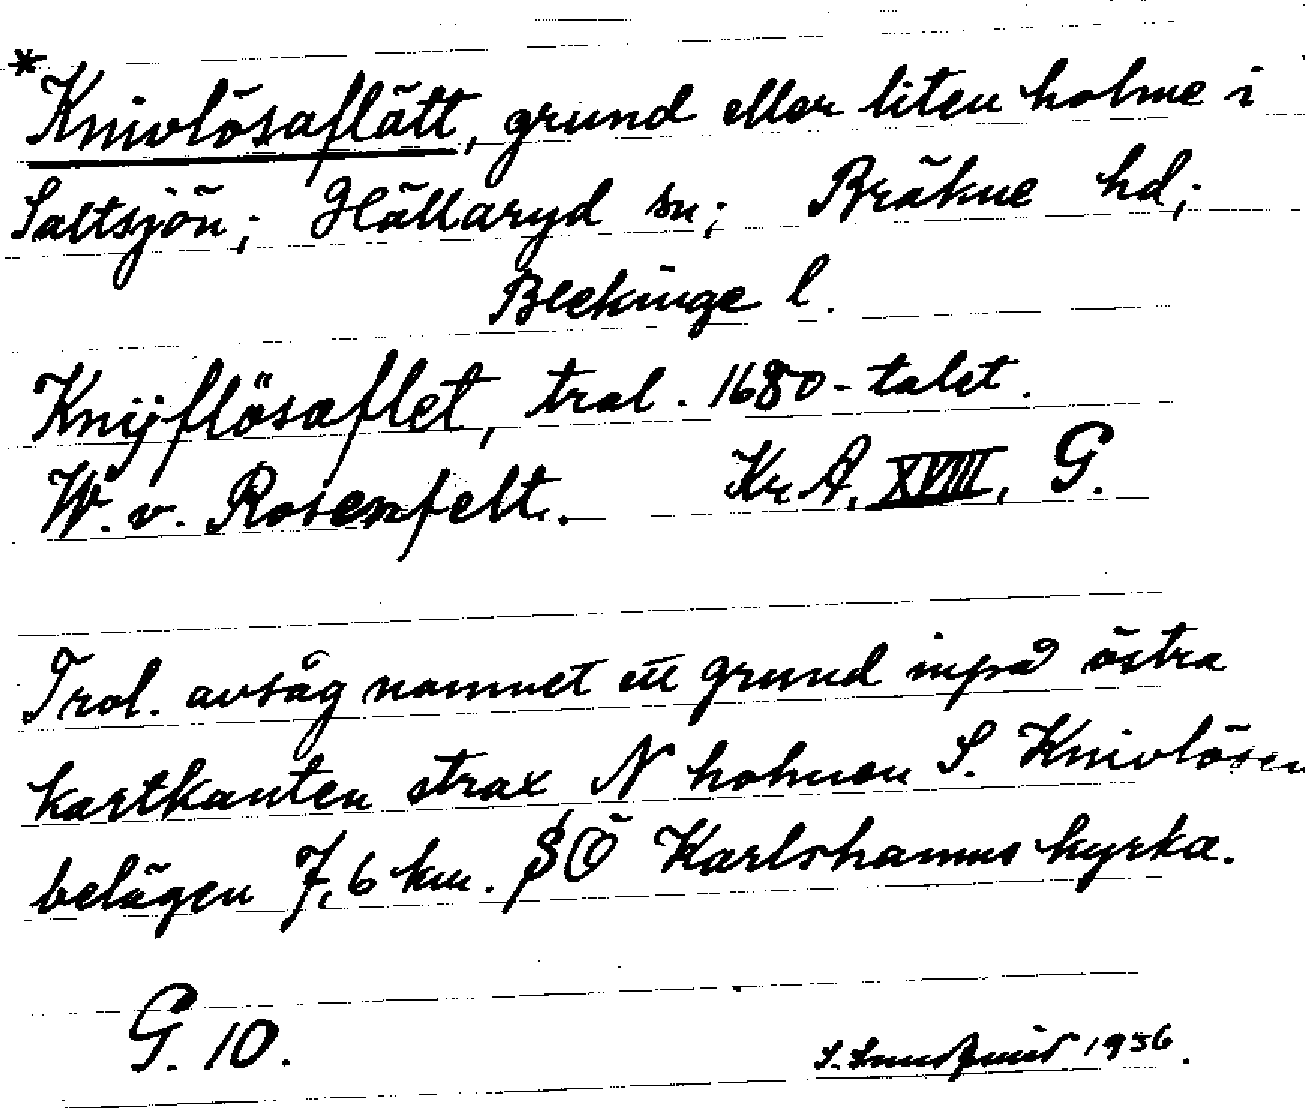 *Knivlösaflätt, grund eller liten holme i
Saltsjön; Hällaryd sn; Bräkne hd;
Blekinge l.
Knijflösaflet, trol. 1680-talet.
W. v. Rosenfelt. Kr A, XVIII, G.
Trol. avsåg namnet ett grund inpå östra
kartkanten strax N holmen S. Knivlösen
belägen 7,6 km. SÖ Karlshamns kyrka.
G. 10.
1936.